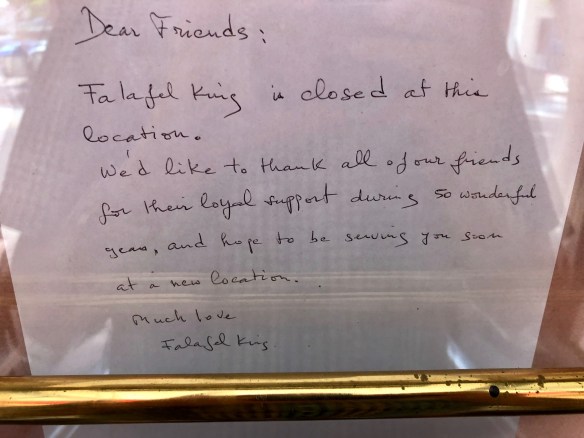 Dear Friends:
Falafel King is closed at this
location.
We'd like to thank all of our friends
for their loyal support during 50 wonderful
years, and hope to be serving you soon
at a new location.
Much love
Falafel King